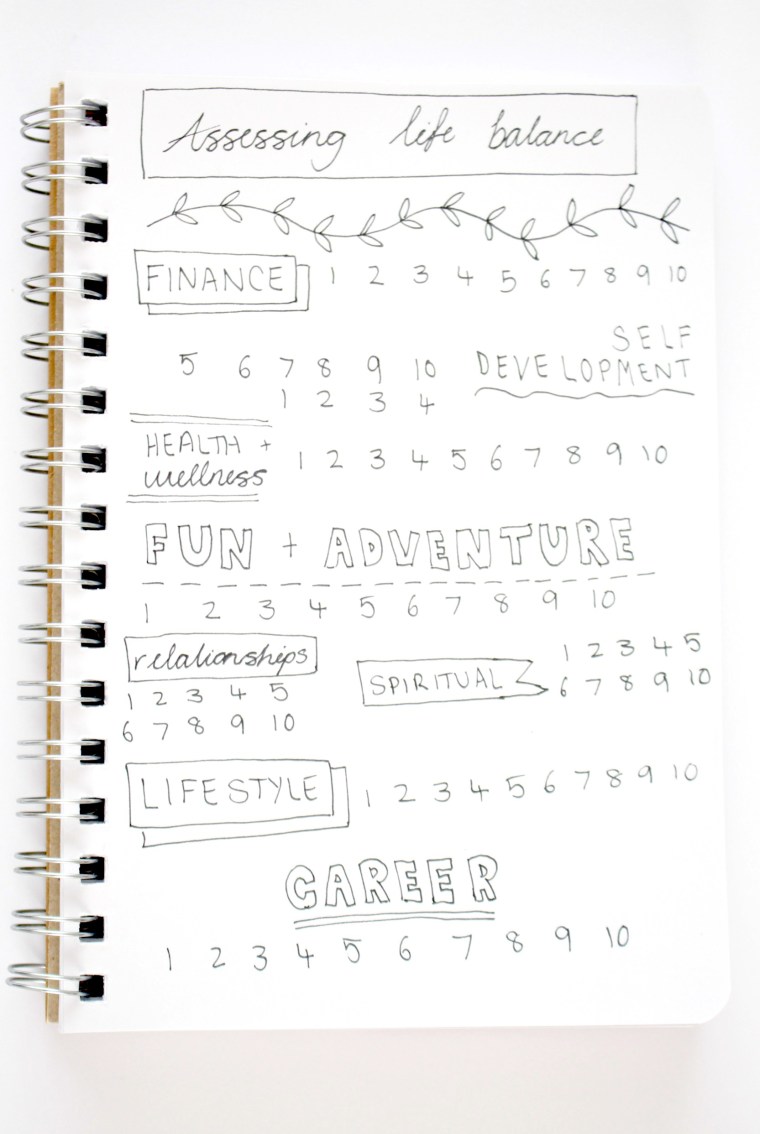 Assessing life balance
FINANCE 1 2 3 4 5 6 7 8 9 10
SELF
5 6 7 8 9 10 DEVELOPMENT
1 2 3 4
HEALTH +
wellness 1 2 3 4 5 6 7 8 9 10
FUN + ADVENTURE
1 2 3 4 5 6 7 8 9 10
relationships
1 2 3 4 5
6 7 8 9 10
SPIRITUAL
1 2 3 4 5
6 7 8 9 10
LIFESTYLE 1 2 3 4 5 6 7 8 9 10
CAREER
1 2 3 4 5 6 7 8 9 10